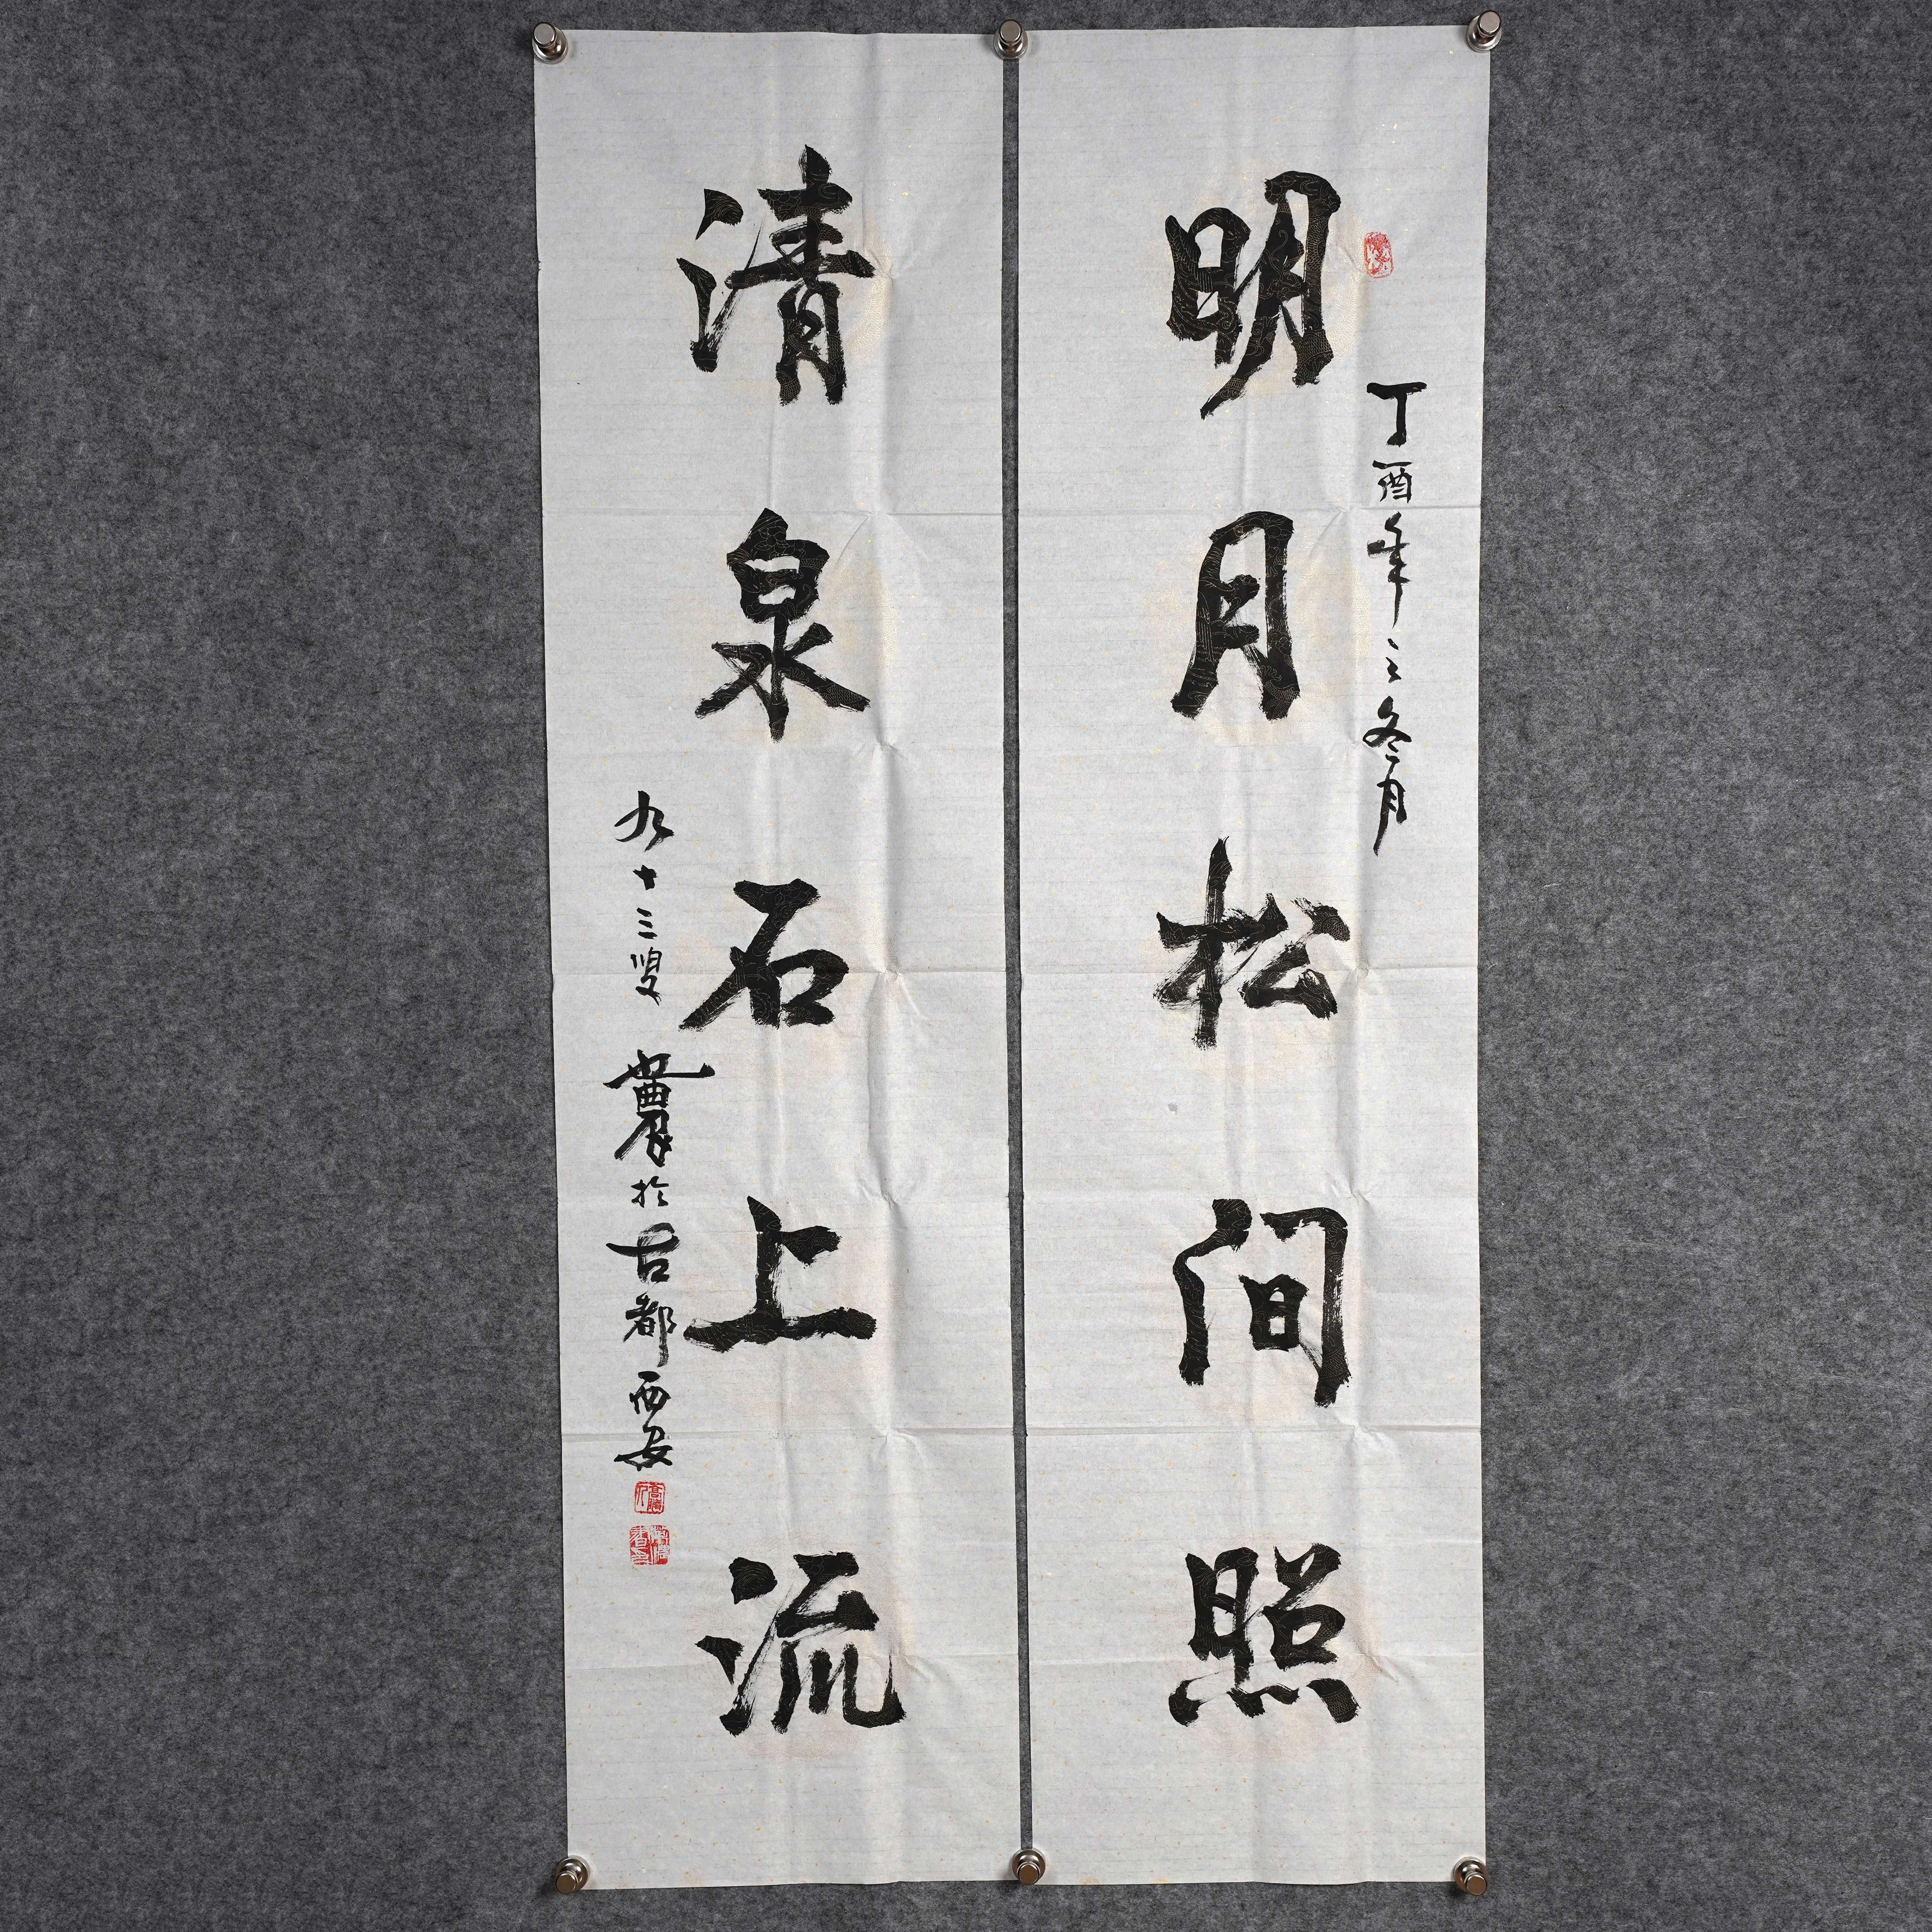 明月松间照
丁酉年之冬月
清泉石上流
九十三叟農於古都西安